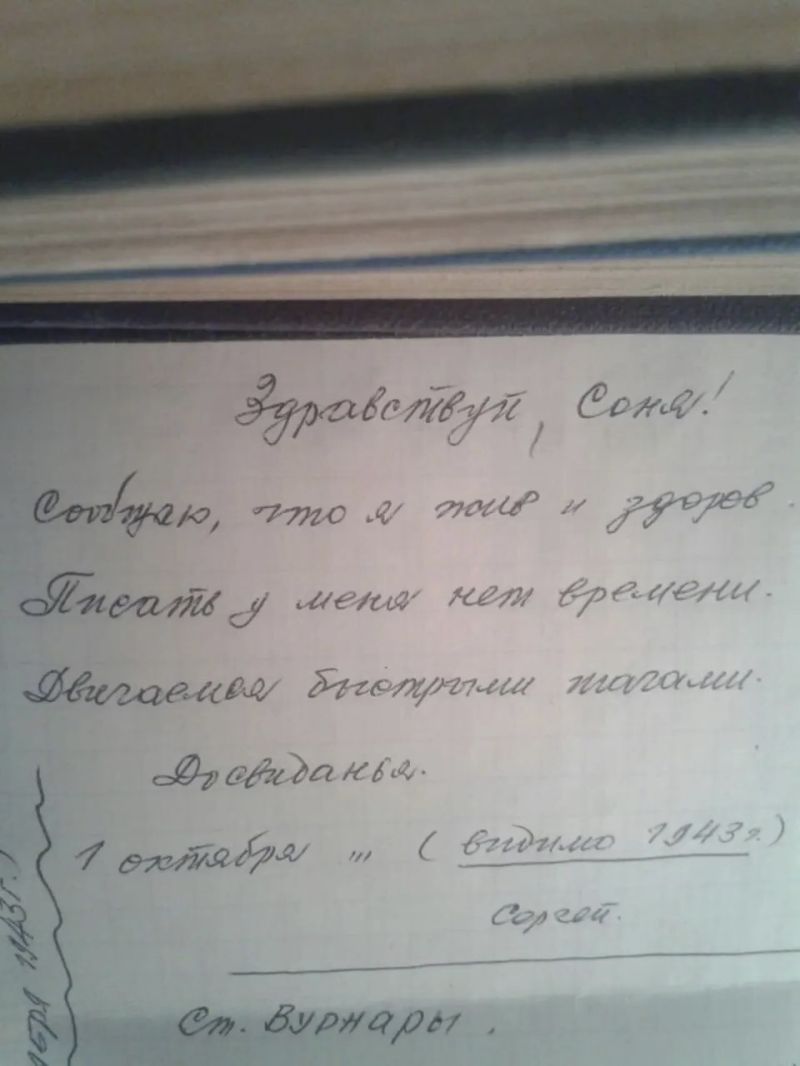 Здравствуй, Соня!
Сообщаю, что я жив и здоров.
Писать у меня нет времени.
Двигаемся быстрыми шагами.
Досвиданья.
1 октября ,,, (видимо 1943г.)
Сергей.
Ст. Вурнары.
бря 1943г.)